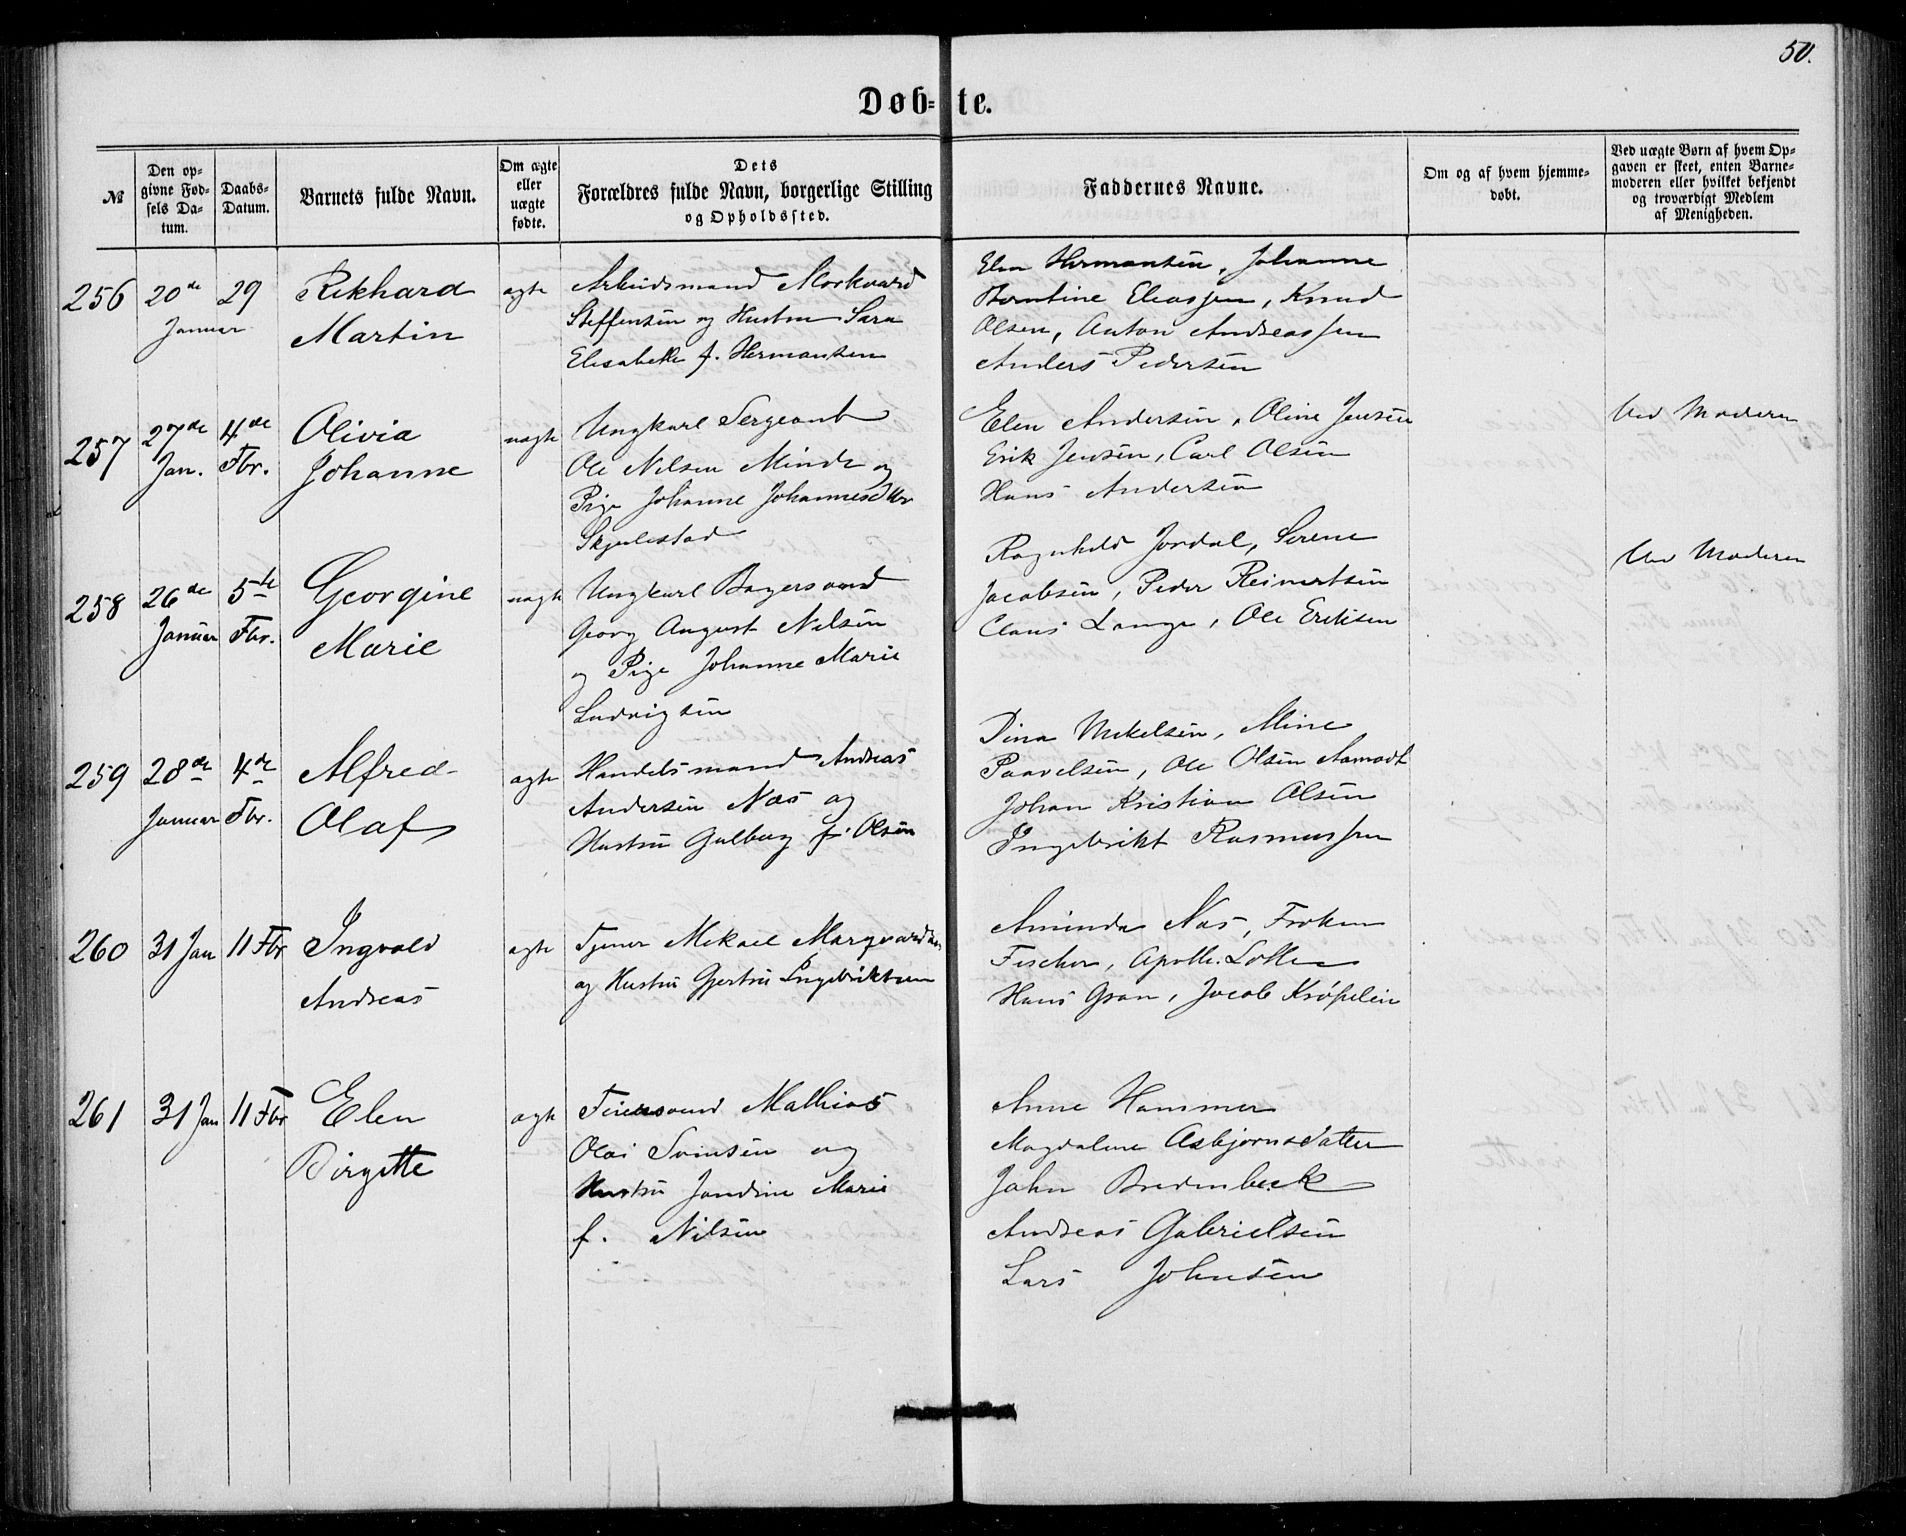 50.
Døb-te.
№
Den op-
givne Fød-
sels Da-
tum.
Daabs-
Datum.
Barnets fulde Navn.
Om ægte
eller
uægte
fødte.
Dets
Forældres fulde Navn, borgerlige Stilling
og Opholdssted.
Faddernes Navne.
Om og af hvem hjemme-
døbt.
Ved uægte Børn af hvem Op-
gaven er skeet, enten Barne-
moderen eller hvilket bekjendt
og troværdigt Medlem
af Menigheden.
256
20de
Januar
29
Rikhard
Martin
ægte
Arbeidsmand Markvard
Steffensen og Hustru Sara
Elisabeth f. Hermansen
Elen Hermansen, Johanne
Berntine Eleassen, Knud
Olsen, Anton Andreassen
Anders Pedersen
257
27de
Jan.
4de
Fbr.
Olivia
Johanne
uægte
Ungkarl Sergeant
Ole Nilsen Minde og
Pige Johanne Johannesdtter
Skjelestad
Elen Andersen, Oline Jensen
Erik Jensen, Carl Olsen
Hans Andersen
Ved Moderen
258
26de
Januar
5te
Fbr.
Georgine
Marie
uægte
Ungkarl Bagersvend
Georg August Nilsen
og Pige Johanne Marie
Ludvigsen
Ragnhild Jordal, Serene
Jacobsen, Peder Reinertsen
Claus Lange, Ole Eriksen
Ved Moderen
259
28de
Januar
4de
Fbr.
Alfred
Olaf
ægte
Handelsmand Andreas
Andersen Næs og
Hustru Gulborg f. Olsen
Dina Mikelsen, Mine
Paavelsen, Ole Olsen Aamodt
Johan Kristian Olsen
Ingebrikt Rasmussen
260
31 Jan
11 Fbr
Ingvald
Andreas
ægte
Tjener Mikael Marqvardsen
og Hustru Gjertru Ingebriktsen
Aminda Næs, Frøken
Fischer, Apoth. Lothe
Hans Gran, Jacob Krøpelin
261
31 Jan
11 Fbr
Elen
Birgitte
ægte
Feiersvend Mathias
Olai Svinsen og
Hustru Jandine Marie
f. Nilsen
Anne Hammer
Magdalene Asbjørnsdatter
John Bredenbeck
Andreas Gabrielsen
Lars Johnsen